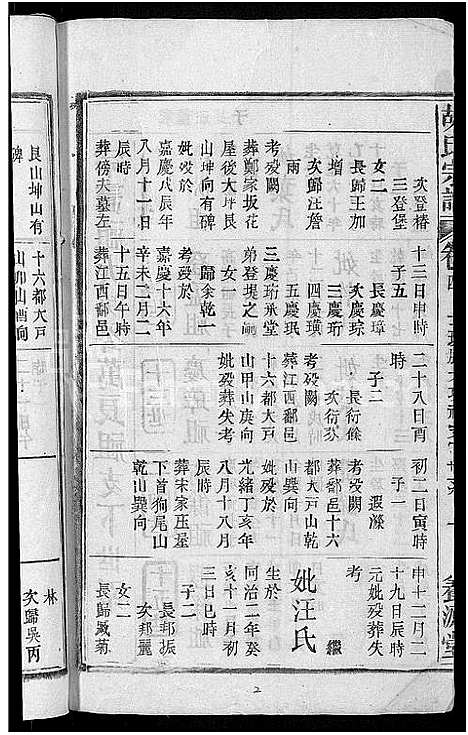 胡氏宗譜
卷四
次登椿
三登堡
女二
長歸王加
增
次歸汪詹
雨
考殁闕
葬鄭家坂花
屋後大坪艮
山坤向有碑
嘉慶戊辰年
八月十一日
辰時
葬傍夫墓左
十三日申時
子五
長慶璋
次慶琮
三慶珩
四慶璜
十慶珉
三慶珩承堂
弟登堤之嗣
女一
歸余乾一
考殁於
嘉慶十六年
辛未二月二
十五日午時
葬江西鄱邑
二十八日酉
時
子二
長衍儵
次衍炏
考殁闕
葬江西鄱邑
十六都大戸
山甲山庚向
妣殁葬失考
初二日寅時
子一
遐滌
考殁闕
葬鄱邑十六
都大戸山乾
山巽向
妣殁於
光緒丁亥年
八月十八月
辰時
葬宋家玉屋
下首狗尾山
乾山巽向
申十二月二
十九日辰時
元妣殁葬失
考
繼
妣汪氏
生於
同治二年癸
亥十一月初
三日巳時
子二
長邦振
次邦麗
女二
長歸臧菊
敘源堂
艮山坤山有
碑
十六都大戸
山卯山酉向
林
次歸吳丙
2